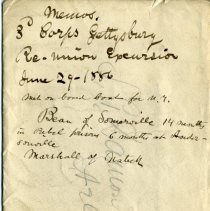 Memos.
3d Corps Gettysburg
Re-union Excursion
June 29-1886
Met on board boat for N.Y.
Bean of Somerville 14 months
in Rebel prison 6 months at Ander-
sonville
Marshall of Natick